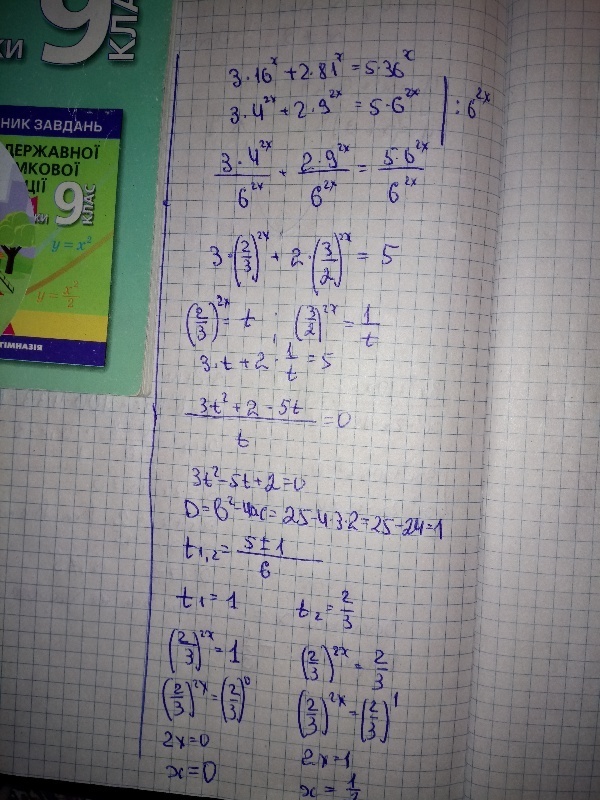 9
КЛА
КИ
НИК ЗАВДАНЬ
ДЕРЖАВНОЇ
МКОВОЇ
ЦІЇ
КИ 9 КЛАС
y = x²
y = x²/2
ГІМНАЗІЯ
3·16^x + 2·81^x = 5·36^x
3·4^2x + 2·9^2x = 5·6^2x | : 6^2x
3·4^2x/6^2x + 2·9^2x/6^2x = 5·6^2x/6^2x
3·(2/3)^2x + 2·(3/2)^2x = 5
(2/3)^2x = t ; (3/2)^2x = 1/t
3·t + 2·1/t = 5
(3t² + 2 - 5t)/t = 0
3t² - 5t + 2 = 0
D = b² - 4ac = 25 - 4·3·2 = 25 - 24 = 1
t1,2 = (5 ± 1)/6
t1 = 1 t2 = 2/3
(2/3)^2x = 1 (2/3)^2x = 2/3
(2/3)^2x = (2/3)^0 (2/3)^2x = (2/3)^1
2x = 0 2x = 1
x = 0 x = 1/2